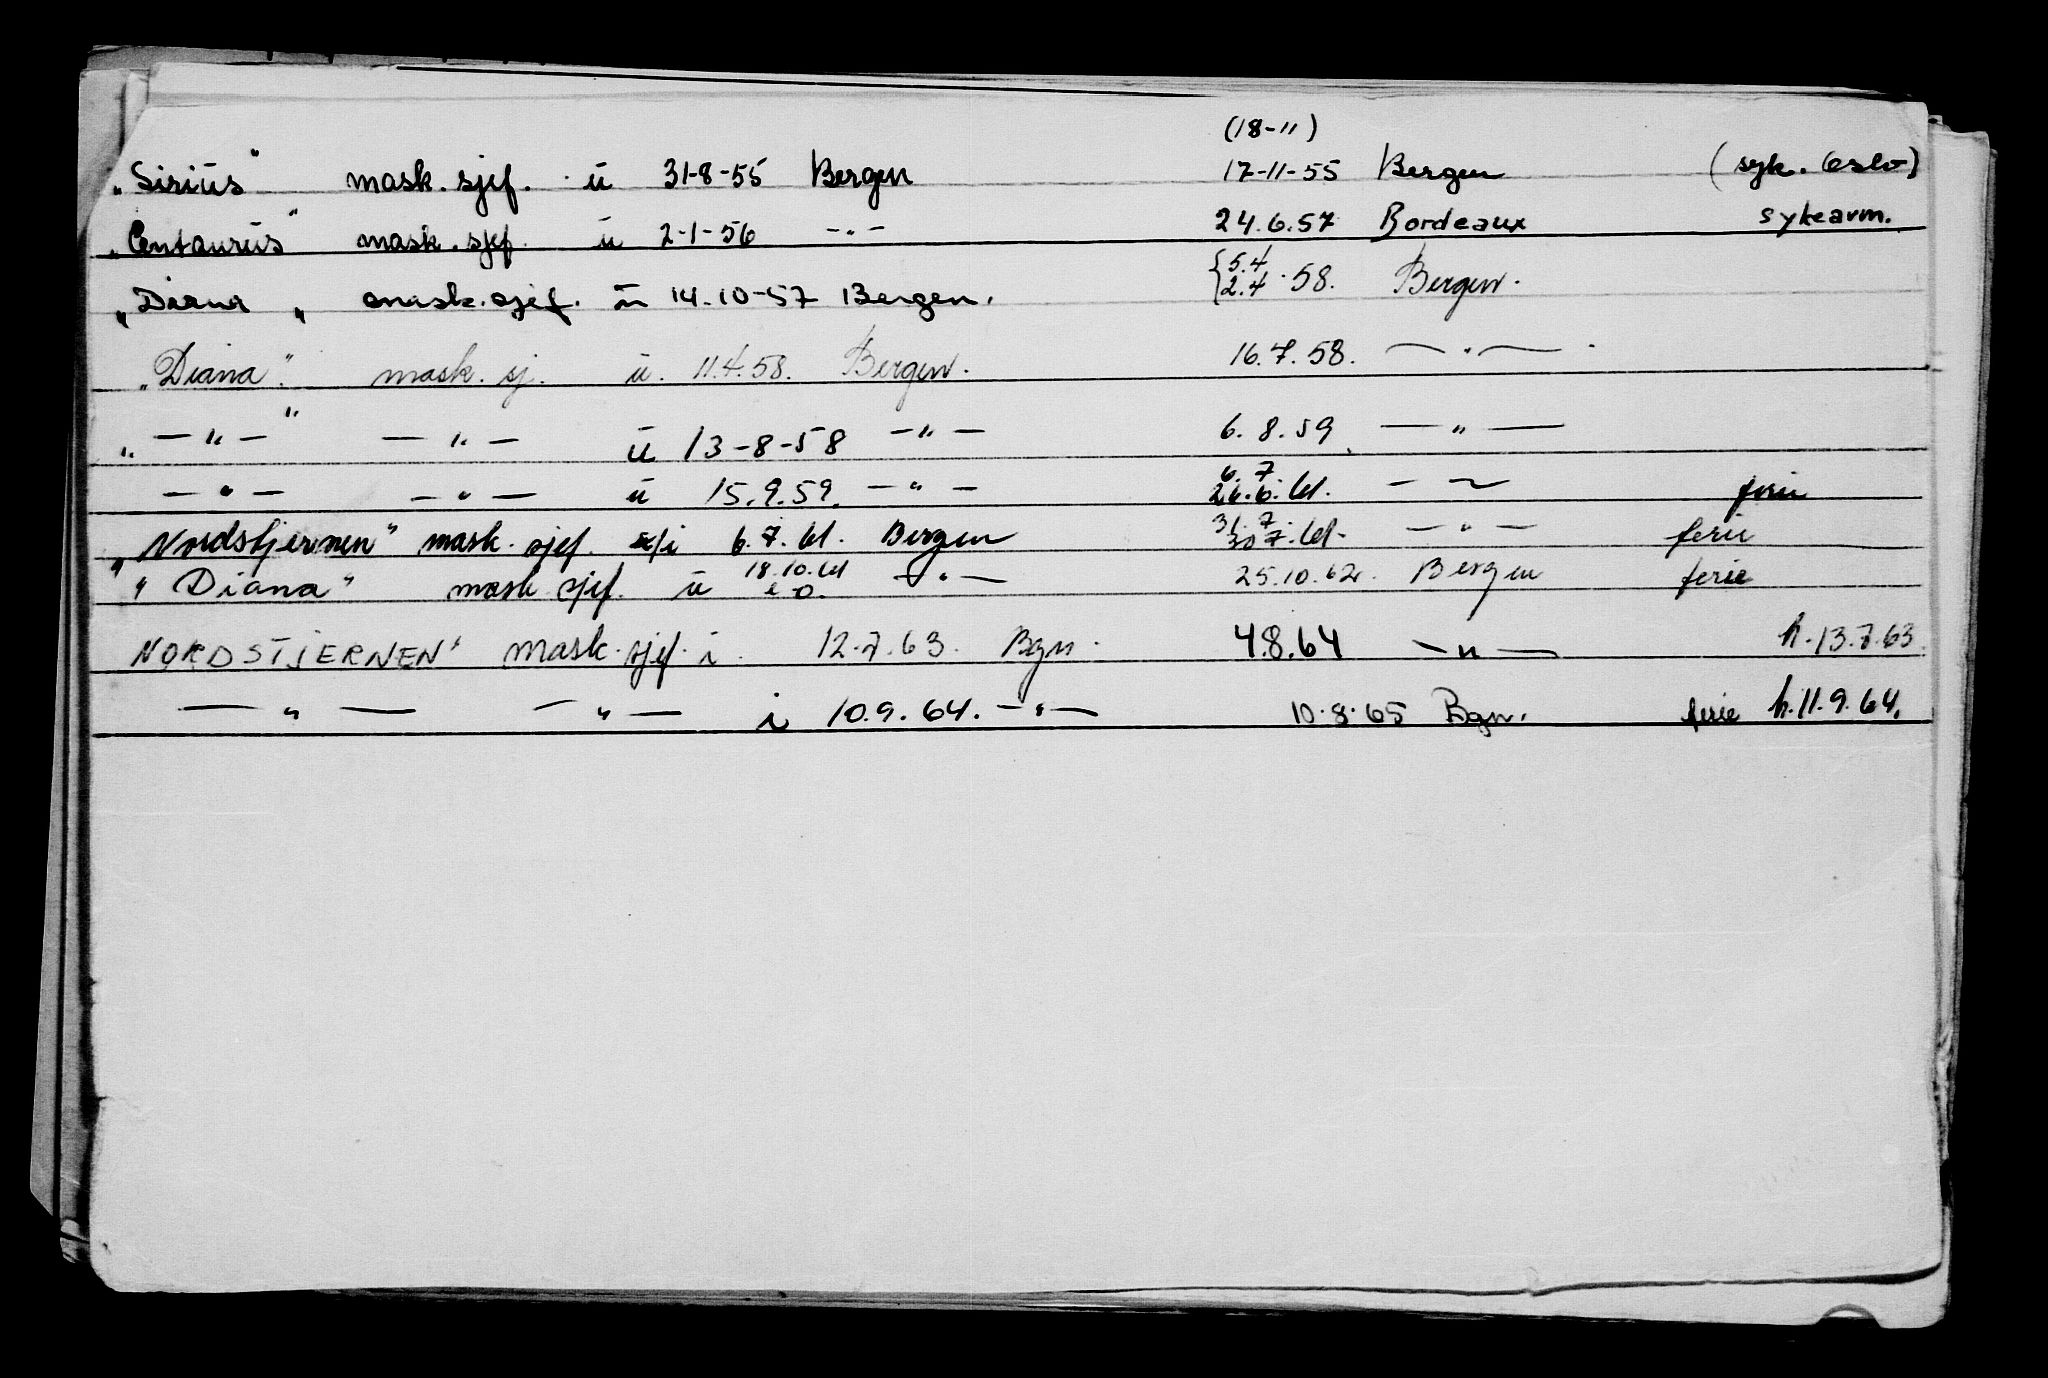 (18-11)
„Sirius" mask. sjef. u 31-8-55 Bergen 17-11-55 Bergen (syk. Oslo)
„Centaurus" mask. sjef. u 2-1-56 -"- 24.6.57 Bordeaux sykeavm.
„Diana„ mask. sjef. u 14-10-57 Bergen. {5.4 2.4 .58. Bergen.
„Diana". mask. sj. u. 11.4.58. Bergen. 16.7.58. —"—.
„—"—" —"— u 13-8-58 —"— 6.8.59. —"—
—"— —"— u 15.9.59. —"— 6.7 26.6.61. — ~ ferie
„Nordstjernen" mask. sjef. i 6.7.61. Bergen 31.7. 30 7.61. —"— ferie
"Diana" mask sjef. u 18.10.61 —"— 25.10.62. Bergen ferie
NORDSTJERNEN" mask. sjef. i. 12.7.63. Bgn. 4.8.64 —"— h.13.7.63.
—"— —"— i 10.9.64. —"— 10.8.65 Bgn. ferie h.11.9.64.